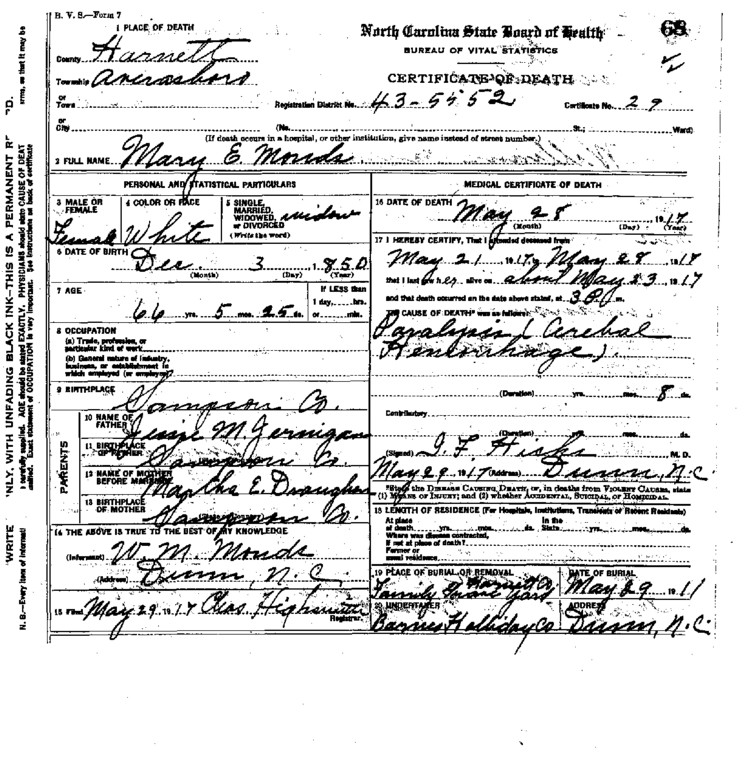 B. V. S.—Form 7
1 PLACE OF DEATH
North Carolina State Board of Health
68
County Harnett
BUREAU OF VITAL STATISTICS
Township Averasboro
CERTIFICATE OF DEATH
or
Town
Registration District No. 43-5552
Certificate No. 29
or
City
(No.
St.;
Ward)
(If death occurs in a hospital, or other institution, give name instead of street number.)
2 FULL NAME Mary E. Monds
PERSONAL AND STATISTICAL PARTICULARS
3 MALE OR FEMALE
Female
4 COLOR OR RACE
White
5 SINGLE, MARRIED, WIDOWED, or DIVORCED
(Write the word)
widow
6 DATE OF BIRTH Dec. 3, 1850
(Month) (Day) (Year)
7 AGE
66 yrs. 5 mos. 25 ds.
If LESS than
1 day,......hrs.
or......min.
8 OCCUPATION
(a) Trade, profession, or
particular kind of work
(b) General nature of industry,
business, or establishment in
which employed (or employer)
9 BIRTHPLACE
Sampson Co.
PARENTS
10 NAME OF FATHER Jessie M. Jernigan
11 BIRTHPLACE OF FATHER Sampson Co.
12 NAME OF MOTHER BEFORE MARRIAGE Martha E. Draughon
13 BIRTHPLACE OF MOTHER Sampson Co.
14 THE ABOVE IS TRUE TO THE BEST OF MY KNOWLEDGE
(Informant) W. M. Monds
(Address) Dunn, N.C.
15 Filed May 29, 1917 Chas. Highsmith
Registrar.
MEDICAL CERTIFICATE OF DEATH
16 DATE OF DEATH May 28 1917
(Month) (Day) (Year)
17 I HEREBY CERTIFY, That I attended deceased from
May 21, 1917, May 28 1917
that I last saw her alive on about May 23 1917
and that death occurred on the date above stated, at m.
The CAUSE OF DEATH* was as follows:
Paralysis (Cerebal
Hemorrhage).
(Duration) yrs. mos. 8 ds.
Contributory
(Duration) yrs. mos. ds.
(Signed) J. F. Hicks M. D.
May 29, 1917 (Address) Dunn, N.C.
*State the DISEASE CAUSING DEATH, or, in deaths from VIOLENT CAUSES, state
(1) MEANS OF INJURY; and (2) whether ACCIDENTAL, SUICIDAL, OR HOMICIDAL.
18 LENGTH OF RESIDENCE (For Hospitals, Institutions, Transients or Recent Residents)
At place
of death yrs. mos. ds.
In the
State
Where was disease contracted,
If not at place of death?
Former or
usual residence
19 PLACE OF BURIAL OR REMOVAL
Harnett Co
Family Grave Yard
DATE OF BURIAL
May 29 1911
20 UNDERTAKER
Barnes Holliday Co
ADDRESS
Dunn, N.C.
PLAINLY, WITH UNFADING BLACK INK—THIS IS A PERMANENT
WRITE
AGE should be stated EXACTLY. PHYSICIANS should state CAUSE OF DEAT
terms, so that it may be
Exact statement of OCCUPATION is very important. See instructions on back of certificate
N. B.—Every item of informati